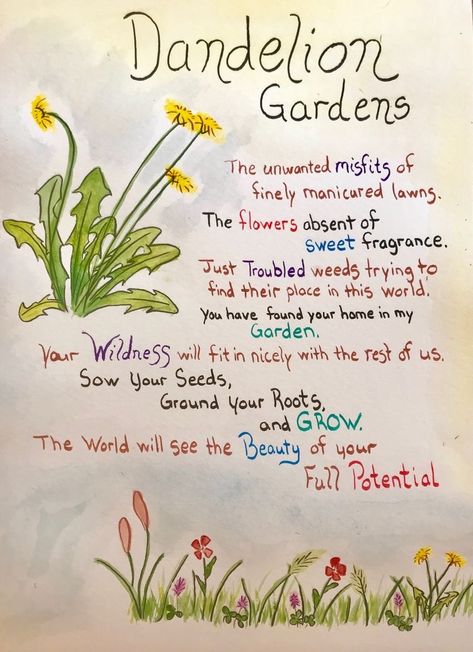 Dandelion
Gardens
The unwanted misfits of
finely manicured lawns.
The flowers absent of
sweet fragrance.
Just Troubled weeds trying to
find their place in this world.
You have found your home in my
Garden.
Your Wildness will fit in nicely with the rest of us.
Sow Your Seeds,
Ground Your Roots,
and GROW.
The World will see the Beauty of your
Full Potential